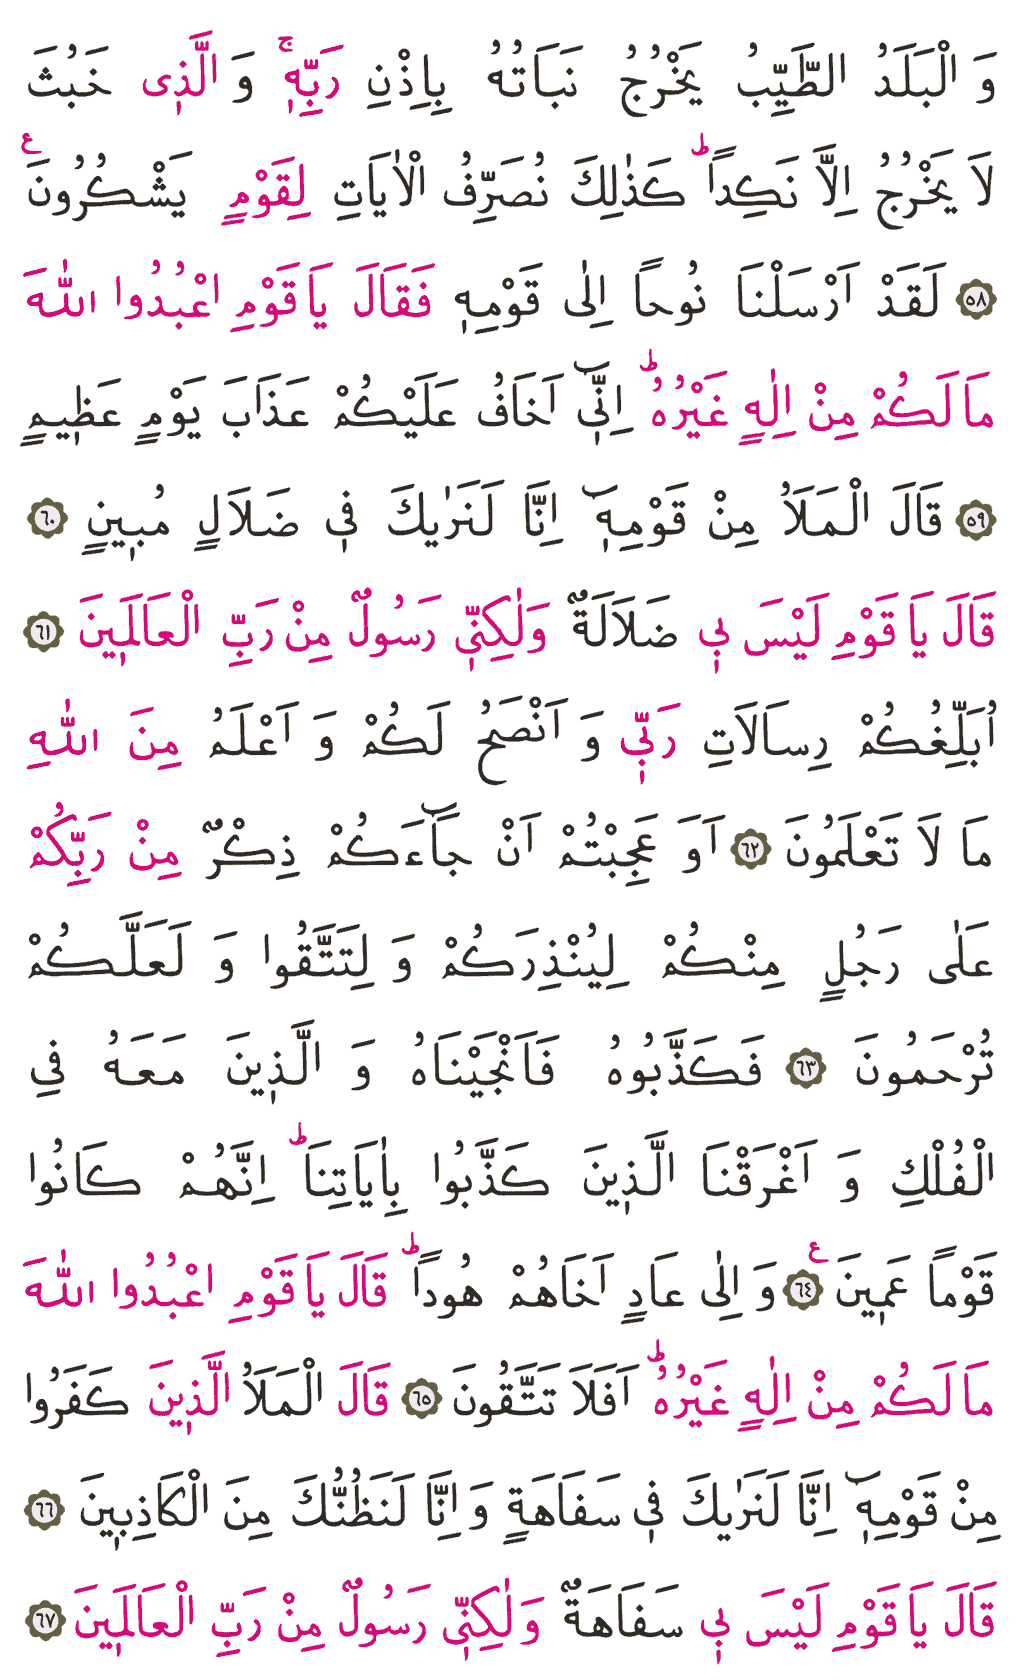 وَ الْبَلَدُ الطَّيِّبُ يَخْرُجُ نَبَاتُهُ بِاِذْنِ رَبِّه۪ۚ وَ الَّذ۪ى خَبُثَ
لَا يَخْرُجُ اِلَّا نَكِداًۜ كَذٰلِكَ نُصَرِّفُ الْاٰيَاتِ لِقَوْمٍ يَشْكُرُونَ ع
٥٨ لَقَدْ اَرْسَلْنَا نُوحاً اِلٰى قَوْمِه۪ فَقَالَ يَا قَوْمِ اعْبُدُوا اللّٰهَ
مَا لَكُمْ مِنْ اِلٰهٍ غَيْرُهُۜ اِنّ۪ٓى اَخَافُ عَلَيْكُمْ عَذَابَ يَوْمٍ عَظ۪يمٍ
٥٩ قَالَ الْمَلَاُ مِنْ قَوْمِه۪ٓ اِنَّا لَنَرٰيكَ ف۪ى ضَلَالٍ مُب۪ينٍ ٦٠
قَالَ يَا قَوْمِ لَيْسَ ب۪ى ضَلَالَةٌ وَلٰكِنّ۪ى رَسُولٌ مِنْ رَبِّ الْعَالَم۪ينَ ٦١
اُبَلِّغُكُمْ رِسَالَاتِ رَبّ۪ى وَ اَنْصَحُ لَكُمْ وَ اَعْلَمُ مِنَ اللّٰهِ
مَا لَا تَعْلَمُونَ ٦٢ اَوَ عَجِبْتُمْ اَنْ جَٓاءَكُمْ ذِكْرٌ مِنْ رَبِّكُمْ
عَلٰى رَجُلٍ مِنْكُمْ لِيُنْذِرَكُمْ وَ لِتَتَّقُوا وَ لَعَلَّكُمْ
تُرْحَمُونَ ٦٣ فَكَذَّبُوهُ فَاَنْجَيْنَاهُ وَ الَّذ۪ينَ مَعَهُ فِى
الْفُلْكِ وَ اَغْرَقْنَا الَّذ۪ينَ كَذَّبُوا بِاٰيَاتِنَاۜ اِنَّهُمْ كَانُوا
قَوْماً عَم۪ينَ ع ٦٤ وَ اِلٰى عَادٍ اَخَاهُمْ هُوداًۜ قَالَ يَا قَوْمِ اعْبُدُوا اللّٰهَ
مَا لَكُمْ مِنْ اِلٰهٍ غَيْرُهُۜ اَفَلَا تَتَّقُونَ ٦٥ قَالَ الْمَلَاُ الَّذ۪ينَ كَفَرُوا
مِنْ قَوْمِه۪ٓ اِنَّا لَنَرٰيكَ ف۪ى سَفَاهَةٍ وَ اِنَّا لَنَظُنُّكَ مِنَ الْكَاذِب۪ينَ ٦٦
قَالَ يَا قَوْمِ لَيْسَ ب۪ى سَفَاهَةٌ وَلٰكِنّ۪ى رَسُولٌ مِنْ رَبِّ الْعَالَم۪ينَ ٦٧